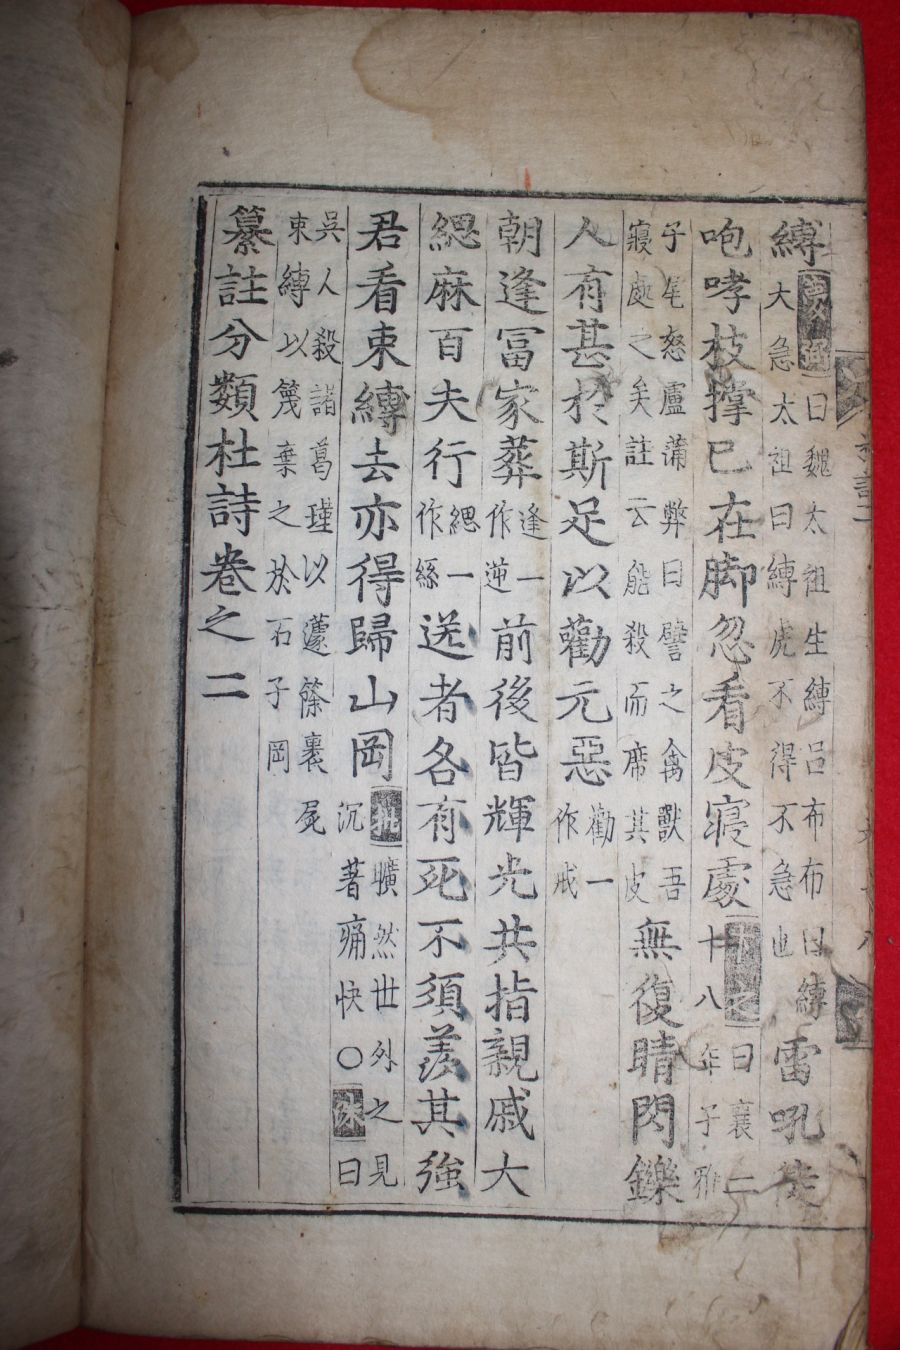 縛大急太祖曰縛虎不得不急也曰魏太祖生縛呂布布曰縛雷吼徒
咆哮枝撑已在脚忽看皮寢處曰襄二十八年子雅
子尾怒盧蒲弊曰譬之禽獸吾寢處之矣註云能殺而席其皮無復睛閃鑠
人有甚於斯足以勸元惡勸一作戒
朝逢冨家葬逢一作逆前後皆輝光共指親戚大
緦麻百夫行緦一作絲送者各有死不須羨其強
君看束縛去亦得歸山岡批曠然世外之見沉著痛快○洙曰
吳人殺諸葛瑾以籧篨裹屍束縛以篾棄之於石子岡
纂註分類杜詩卷之二